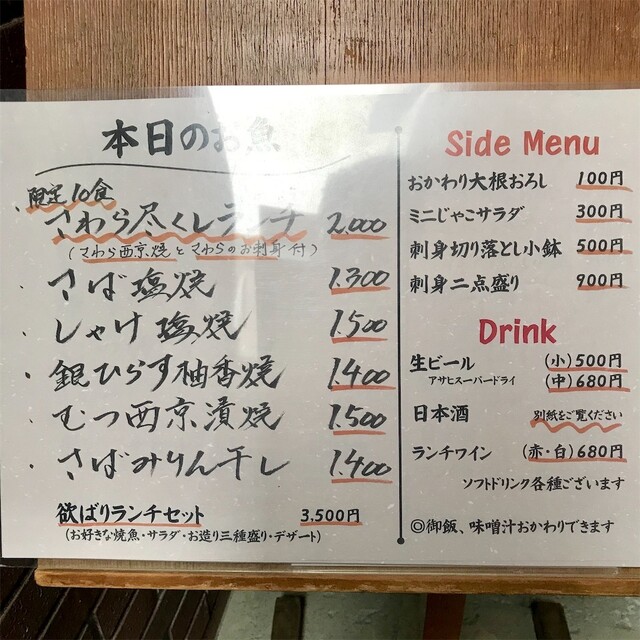 本日のお魚
限定10食
さわら尽くしランチ 2,000
(さわら西京焼とさわらのお刺身付)
・さば塩焼 1,300
・しゃけ塩焼 1,500
・銀ひらす柚香焼 1,400
・むつ西京漬焼 1,500
・さばみりん干し 1,400
欲ばりランチセット 3,500円
(お好きな焼魚・サラダ・お造り三種盛り・デザート)
Side Menu
おかわり大根おろし 100円
ミニじゃこサラダ 300円
刺身切り落とし小鉢 500円
刺身二点盛り 900円
Drink
生ビール (小)500円
アサヒスーパードライ (中)680円
日本酒 別紙をご覧ください
ランチワイン (赤・白)680円
ソフトドリンク各種ございます
◎御飯、味噌汁おかわりできます